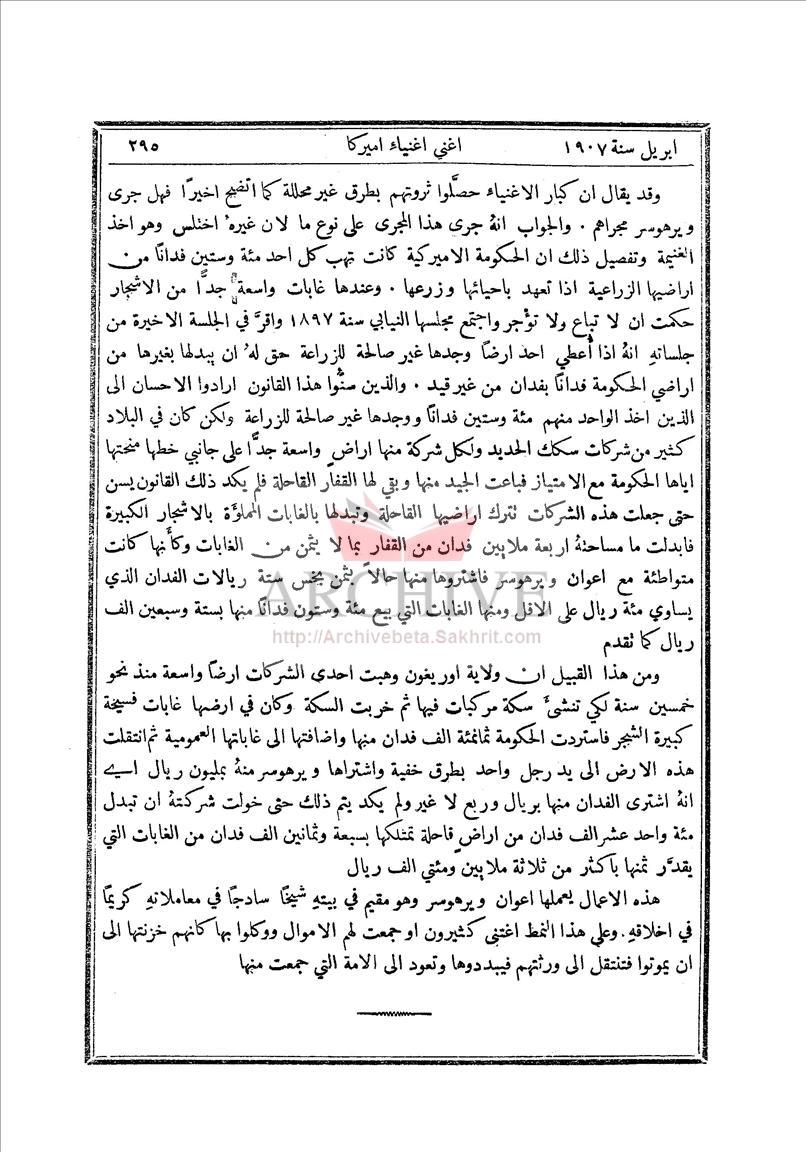 ابريل سنة ١٩٠٧
اغنى اغنياء اميركا
٢٩٥
وقد يقال ان كبار الاغنياء حصّلوا ثروتهم بطرق غير محللة كما اتضح اخيرًا فهل جرى
ويرهوسر مجراهم . والجواب انهُ جرى هذا المجرى على نوع ما لان غيرهُ اختلس وهو اخذ
الغنيمة وتفصيل ذلك ان الحكومة الاميركية كانت تهب كل احد مئة وستين فدانًا من
اراضيها الزراعية اذا تعهد باحيائها وزرعها . وعندها غابات واسعة جدًّا من الاشجار
حكمت ان لا تباع ولا تؤجر واجتمع مجلسها النيابي سنة ١٨٩٧ واقرَّ في الجلسة الاخيرة من
جلساتهِ انهُ اذا أُعطي احد ارضًا وجدها غير صالحة للزراعة حق لهُ ان يبدلها بغيرها من
اراضي الحكومة فدانًا بفدان من غير قيد . والذين سنُّوا هذا القانون ارادوا الاحسان الى
الذين اخذ الواحد منهم مئة وستين فدانًا ووجدها غير صالحة للزراعة ولكن كان في البلاد
كثير من شركات سكك الحديد ولكل شركة منها اراضٍ واسعة جدًّا على جانبي خطها منحتها
اياها الحكومة مع الامتياز فباعت الجيد منها وبقي لها القفار القاحلة فلم يكد ذلك القانون يسن
حتى جعلت هذه الشركات تترك اراضيها القاحلة وتبدلها بالغابات المملوَّة بالاشجار الكبيرة
فابدلت ما مساحتهُ اربعة ملايين فدان من القفار بما لا يثمن من الغابات وكأنها كانت
متواطئة مع اعوان ويرهوسر فاشتروها منها حالاً بثمن بخس ستة ريالات الفدان الذي
يساوي مئة ريال على الاقل ومنها الغابات التي بيع مئة وستون فدانًا منها بستة وسبعين الف
ريال كما تقدم
ومن هذا القبيل ان ولاية اوريغون وهبت احدى الشركات ارضًا واسعة منذ نحو
خمسين سنة لكي تنشئَ سكة مركبات فيها ثم خربت السكة وكان في ارضها غابات فسيحة
كبيرة الشجر فاستردت الحكومة ثمانمئة الف فدان منها واضافتها الى غاباتها العمومية ثم انتقلت
هذه الارض الى يد رجل واحد بطرق خفية واشتراها ويرهوسر منهُ بمليون ريال اي
انهُ اشترى الفدان منها بريال وربع لا غير ولم يكد يتم ذلك حتى خولت شركتهُ ان تبدل
مئة واحد عشر الف فدان من اراضٍ قاحلة تمتلكها بسبعة وثمانين الف فدان من الغابات التي
يقدَّر ثمنها باكثر من ثلاثة ملايين ومئتي الف ريال
هذه الاعمال يعملها اعوان ويرهوسر وهو مقيم في بيتهِ شيخًا سادجًا في معاملاتهِ كريمًا
في اخلاقهِ. وعلى هذا النمط اغتنى كثيرون او جمعت لهم الاموال ووكلوا بها كانهم خزنتها الى
ان يموتوا فتنتقل الى ورثتهم فيبددوها وتعود الى الامة التي جمعت منها
ARCHIVE
http://Archivebeta.Sakhrit.com